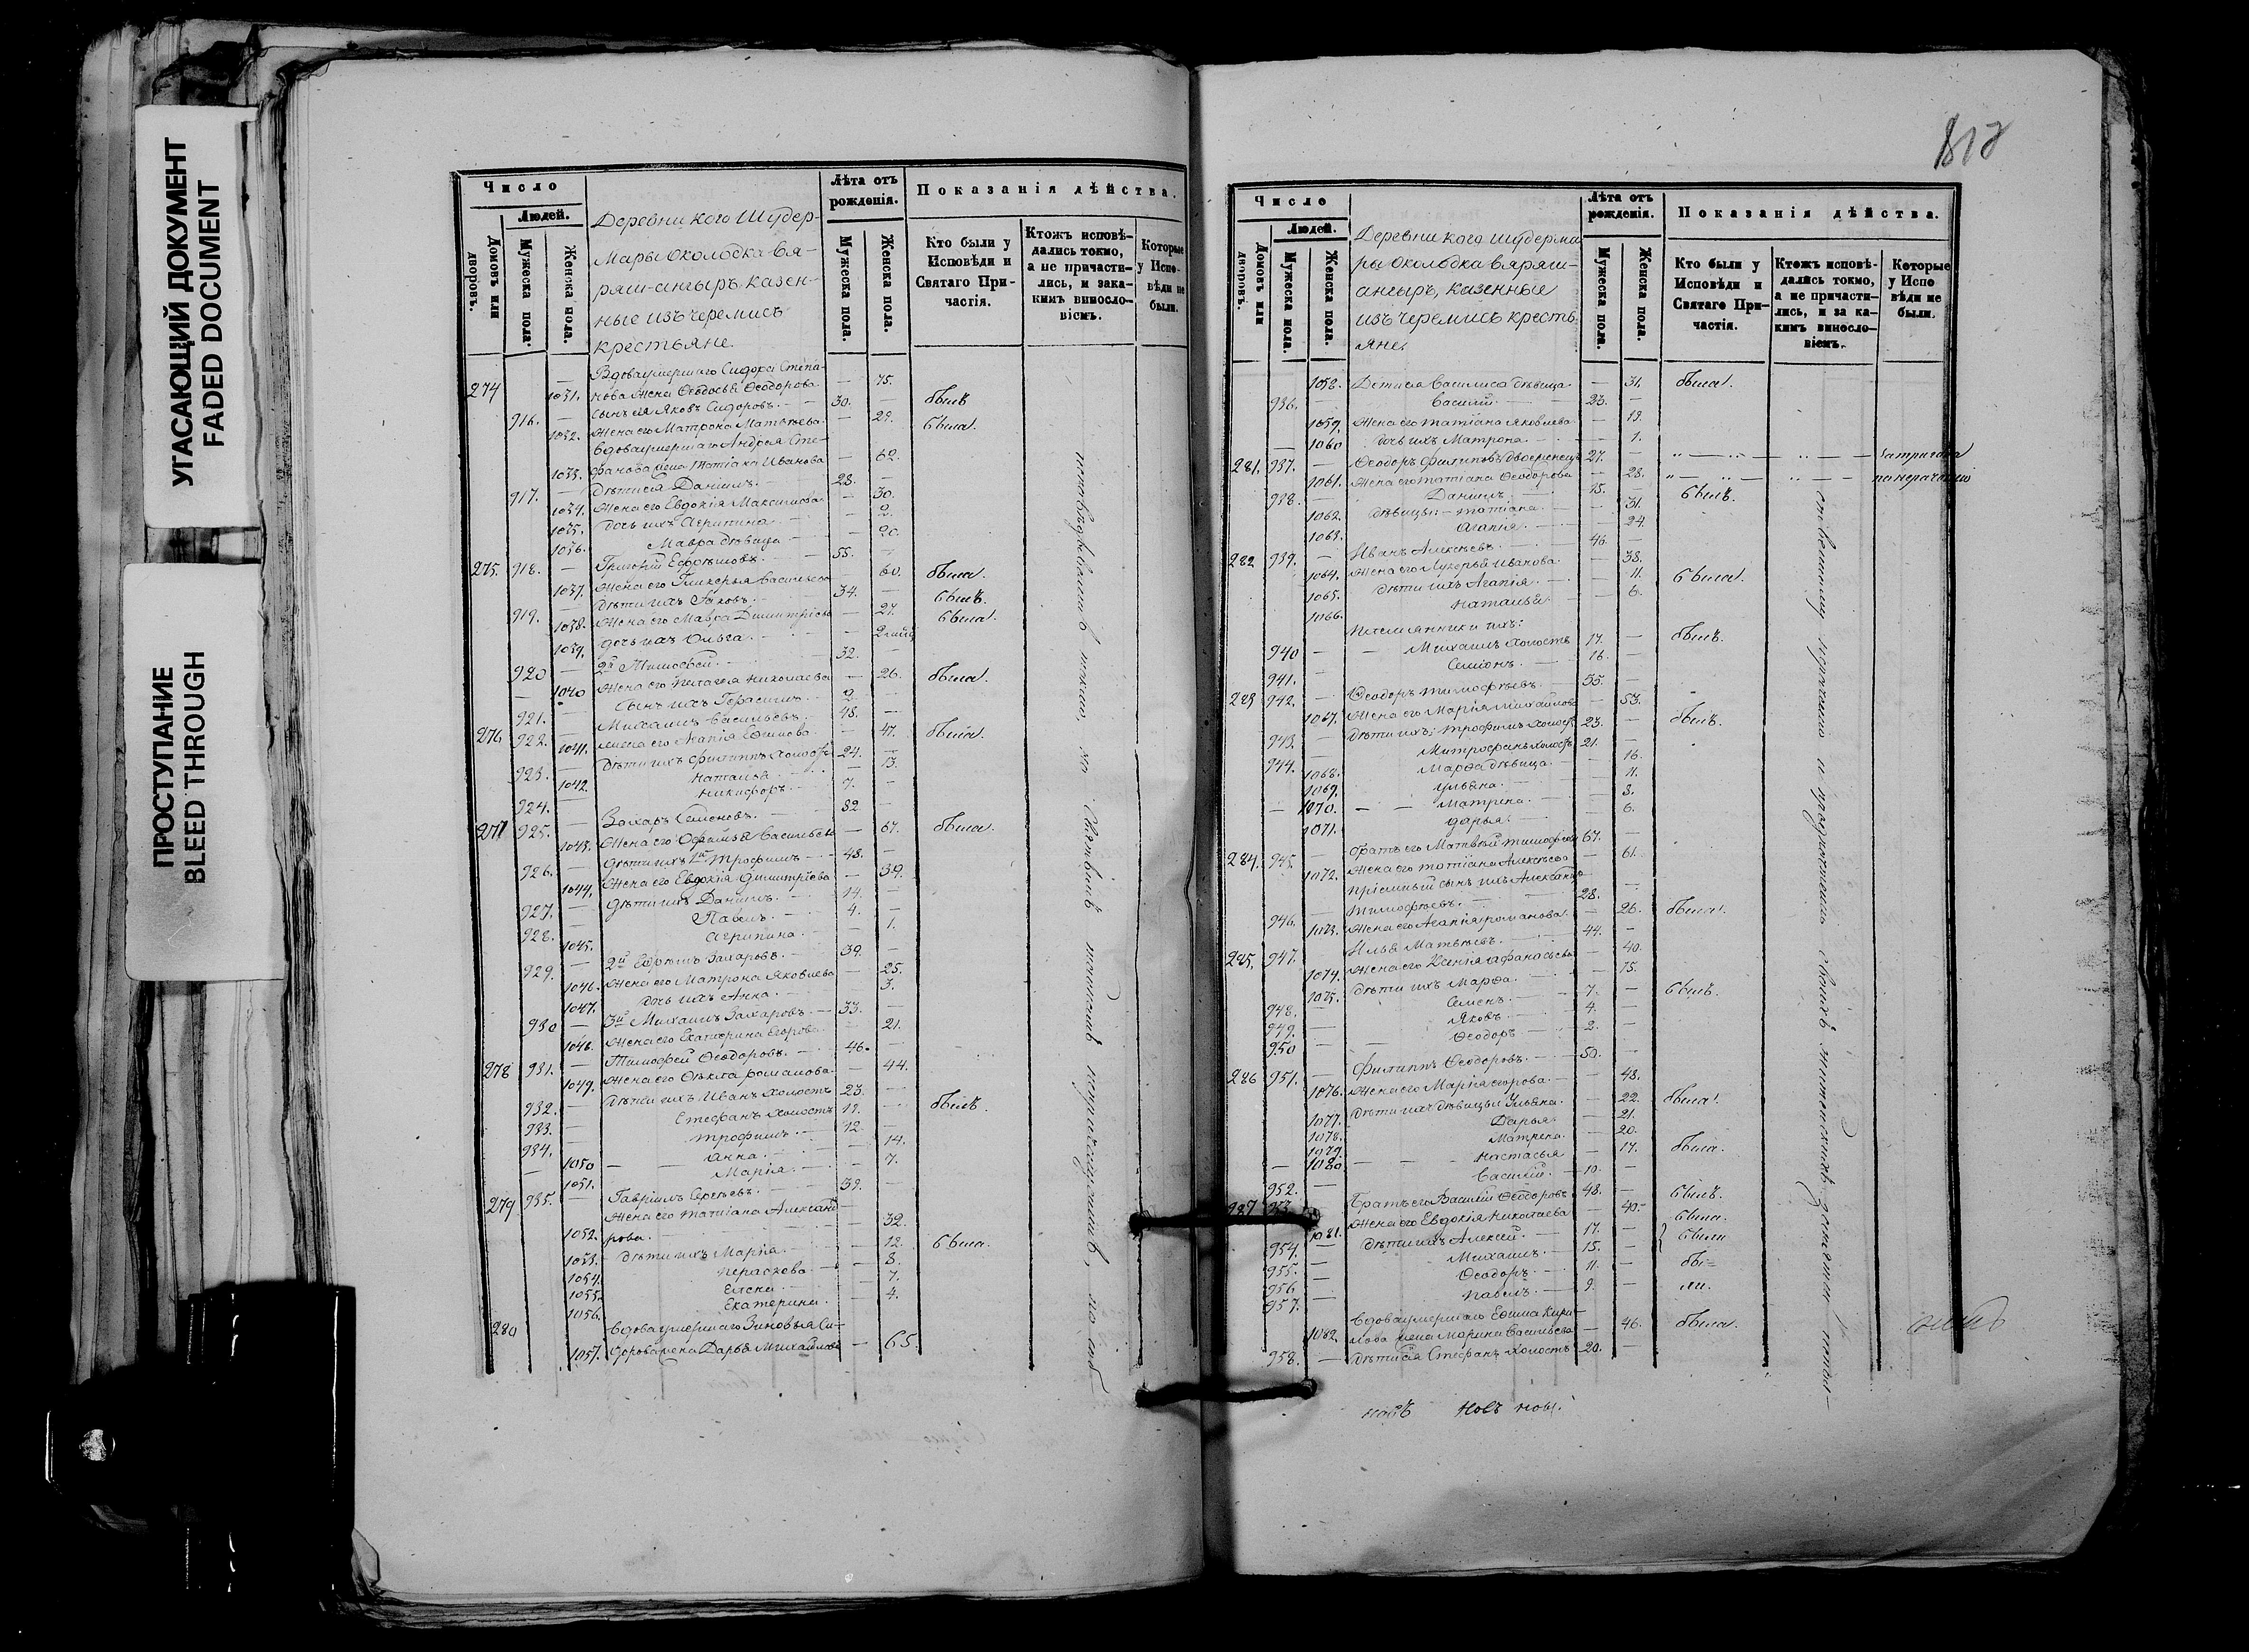 УГАСАЮЩИЙ ДОКУМЕНТ
FADED DOCUMENT
ПРОСТУПАНИЕ
BLEED THROUGH
Число
Людей.
Домовъ или дворовъ.
Мужеска пола.
Женска пола.
Деревни кого Шудер-
Мары околодка Вя-
ряш-ангыръ казен-
ные изъ черемисъ
крестьяне.
Лѣта отъ рожденія.
Мужеска пола.
Женска пола.
Показанія дѣйства.
Кто были у Исповѣди и Святаго Причастія.
Ктожъ исповѣдались токмо, а не причастились, и закакимъ винословіемъ.
Которые у Исповѣди не были.
Вдова умершаго Сидора Степа-
274 1031. нова жена Ѳеодосья Ѳеодорова — 75.
916. — сынъ ея Яковъ Сидоровъ. 30. — былъ
1032. Жена его Матрона Матвѣева — 29. была.
Вдова умершаго Андрея Сте-
1033. фанова жена Татіана Иванова — 62.
917. — дѣти ея Даніилъ. 28. —
1034. Жена его Евдокія Максимова — 30.
1035. дочь ихъ Агрипина — 2.
1036. Мавра дѣвица — 20.
275. 918. — Григорій Ефремовъ. 55. —
1037. Жена его Гликерья Васильева — 60. была.
919. — дѣти ихъ Яковъ. 34. — былъ.
1038. Жена его Мавра Димитріева — 27. была.
1039. дочь ихъ Ольга.
920 — 2й Тимофей. 32. —
1040 Жена его Пелагея Николаева — 26. была.
921. — сынъ ихъ Герасимъ. 2. —
276 922. — Михаилъ Васильевъ. 48. —
1041. жена его Агапія Ефимова — 47. была.
923. — дѣти ихъ Филиппъ холостъ 24. —
1042. Наталья — 13.
924. — Никифоръ 7. —
277 925. — Захаръ Семеновъ. 82 —
1043. Жена его Офимья Васильева — 67. была.
926. — дѣти ихъ 1й Трофимъ 48. —
1044. Жена его Евдокія Димитріева — 39.
927. — дѣти ихъ Даніилъ. 14. —
928. — Павелъ. 4. —
1045. Агрипина — 1.
929. — 2й Ефремъ Захаровъ. 39. —
1046. Жена его Матрона Яковлева — 25.
1047. дочь ихъ Анна. — 3.
930 — 3й Михаилъ Захаровъ. 33. —
1048. Жена его Екатерина Егорова — 21.
278 931. — Тимофей Ѳеодоровъ. 46. —
1049. Жена его Ѳекла Романова — 44.
932. — дѣти ихъ Иванъ холостъ 23. —
933. — Стефанъ холостъ 19. — былъ.
934. — Трофимъ. 12 —
1050 — Анна — 14.
1051. Марія — 7.
279 935. — Гавріилъ Сергѣевъ. 39. —
Жена его Татіана Александ-
1052. рова. — 32.
1053. дѣти ихъ Марія — 12. была.
1054. Пераскева — 8.
1055. Елена — 7.
1056. Екатерина — 4.
280 Вдова умершаго Зиновья Си-
1057. дорова жена Дарья Михайлова — 65.
Число
Людей.
Домовъ или дворовъ.
Мужеска пола.
Женска пола.
Деревни кого Шудерма
ры околодка Вяряш-
ангыръ, казенные
изъ черемисъ кресть
яне.
Лѣта отъ рожденія.
Мужеска пола.
Женска пола.
Показанія дѣйства.
Кто были у Исповѣди и Святаго Причастія.
Ктожъ исповѣдались токмо, а не причастились, и за какимъ винословіемъ.
Которые у Исповѣди не были.
1058. Дети ея Василиса дѣвица — 31. была.
936. — Василій 23. —
1059. Жена его Татіана Яковлева — 19.
1060 дочь ихъ Матрона — 1.
281. 937. — Ѳеодоръ Филиповъ двоеженецъ 27. —
1061. Жена его Татіана Ѳеодорова — 28. по нераченію
938. — Даніилъ 15. — былъ.
1062. дѣвицы: Татіана — 31.
1063. Агапія — 24.
282 939. — Иванъ Алексѣевъ. 46. —
1064. Жена его Лукерья Иванова — 38.
1065. дѣти ихъ Агапія — 11. была.
1066. Наталья — 6.
Племянники ихъ:
940 — Михаилъ холостъ 17. — былъ.
941. — Семіонъ. 16. —
283 942. — Ѳеодоръ Тимофѣевъ. 55. —
1067. Жена его Марія Михайлова — 53.
943. — дѣти ихъ: Трофимъ холостъ 23. — былъ.
944. — Митрофанъ холостъ 21. —
1068. Марѳа дѣвица — 16.
1069. Ульяна — 11.
1070. — Матрена — 8.
1071. Дарья — 6.
284. 945. — братъ его Матвѣй Тимофѣевъ 67. —
1072. Жена его Татіана Алексѣева — 61.
Пріемный сынъ ихъ Александръ
946. — Тимофѣевъ. 28. —
1073. Жена его Агапія Романова — 26. была.
285. 947. Илья Матвѣевъ. 44. —
1074. Жена его Ксенія Афанасьева — 40.
1075. дѣти ихъ Марѳа — 15.
948. — Семенъ 7. — былъ.
949. — Яковъ 4. —
950 — Ѳеодоръ 2. —
286 951. — Филиппъ Ѳеодоровъ. 50. —
1076. Жена его Марія Егорова — 48.
1077. дѣти ихъ дѣвицы Ульяна. — 22. была.
1078. Дарья. — 21.
1079. Матрена — 20.
1080. Настасья — 17. была.
952. — Василій. 10. —
287 953. Братъ его Василій Ѳеодоровъ 48. — былъ.
1081. Жена его Евдокія Николаева — 40. была.
954. — дѣти ихъ Алексѣй. 17. — были
955. — Михаилъ. 15. —
956 — Ѳеодоръ. 11. — бы=
957. — Павелъ. 9. — ли.
Вдова умершаго Ефима Кири-
1082 лова жена Марина Васильева — 46. была.
958. — дѣти ея Стефанъ холостъ 20. —